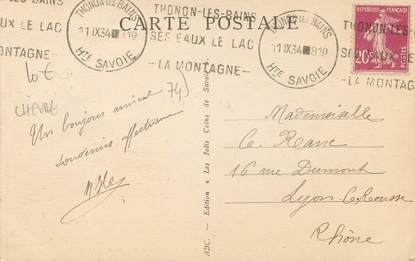 THONON-LES-BAINS
SES EAUX LE LAC
LA MONTAGNE
THONON-LES-BAINS
11 IX 34
HTE SAVOIE
CARTE POSTALE
THONON-LES-BAINS
SES EAUX LE LAC
—LA MONTAGNE—
THONON-LES-BAINS
11 IX 34
HTE SAVOIE
THONON-LES-BAINS
SES EAUX LE LAC
—LA MONTAGNE
20c
10 €
CHEVRE
74)
Un bonjour amical
souvenirs affectueux
ADC. - Edition « Les Jolis Coins de Savoie
Mademoiselle
16 rue Dumont
Lyon
Rhône